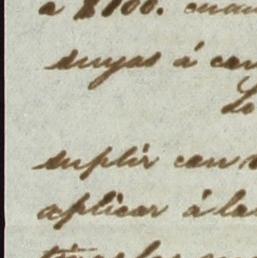 a $100. cuan
suyas á can
Lo
suplir con
aplicar á la